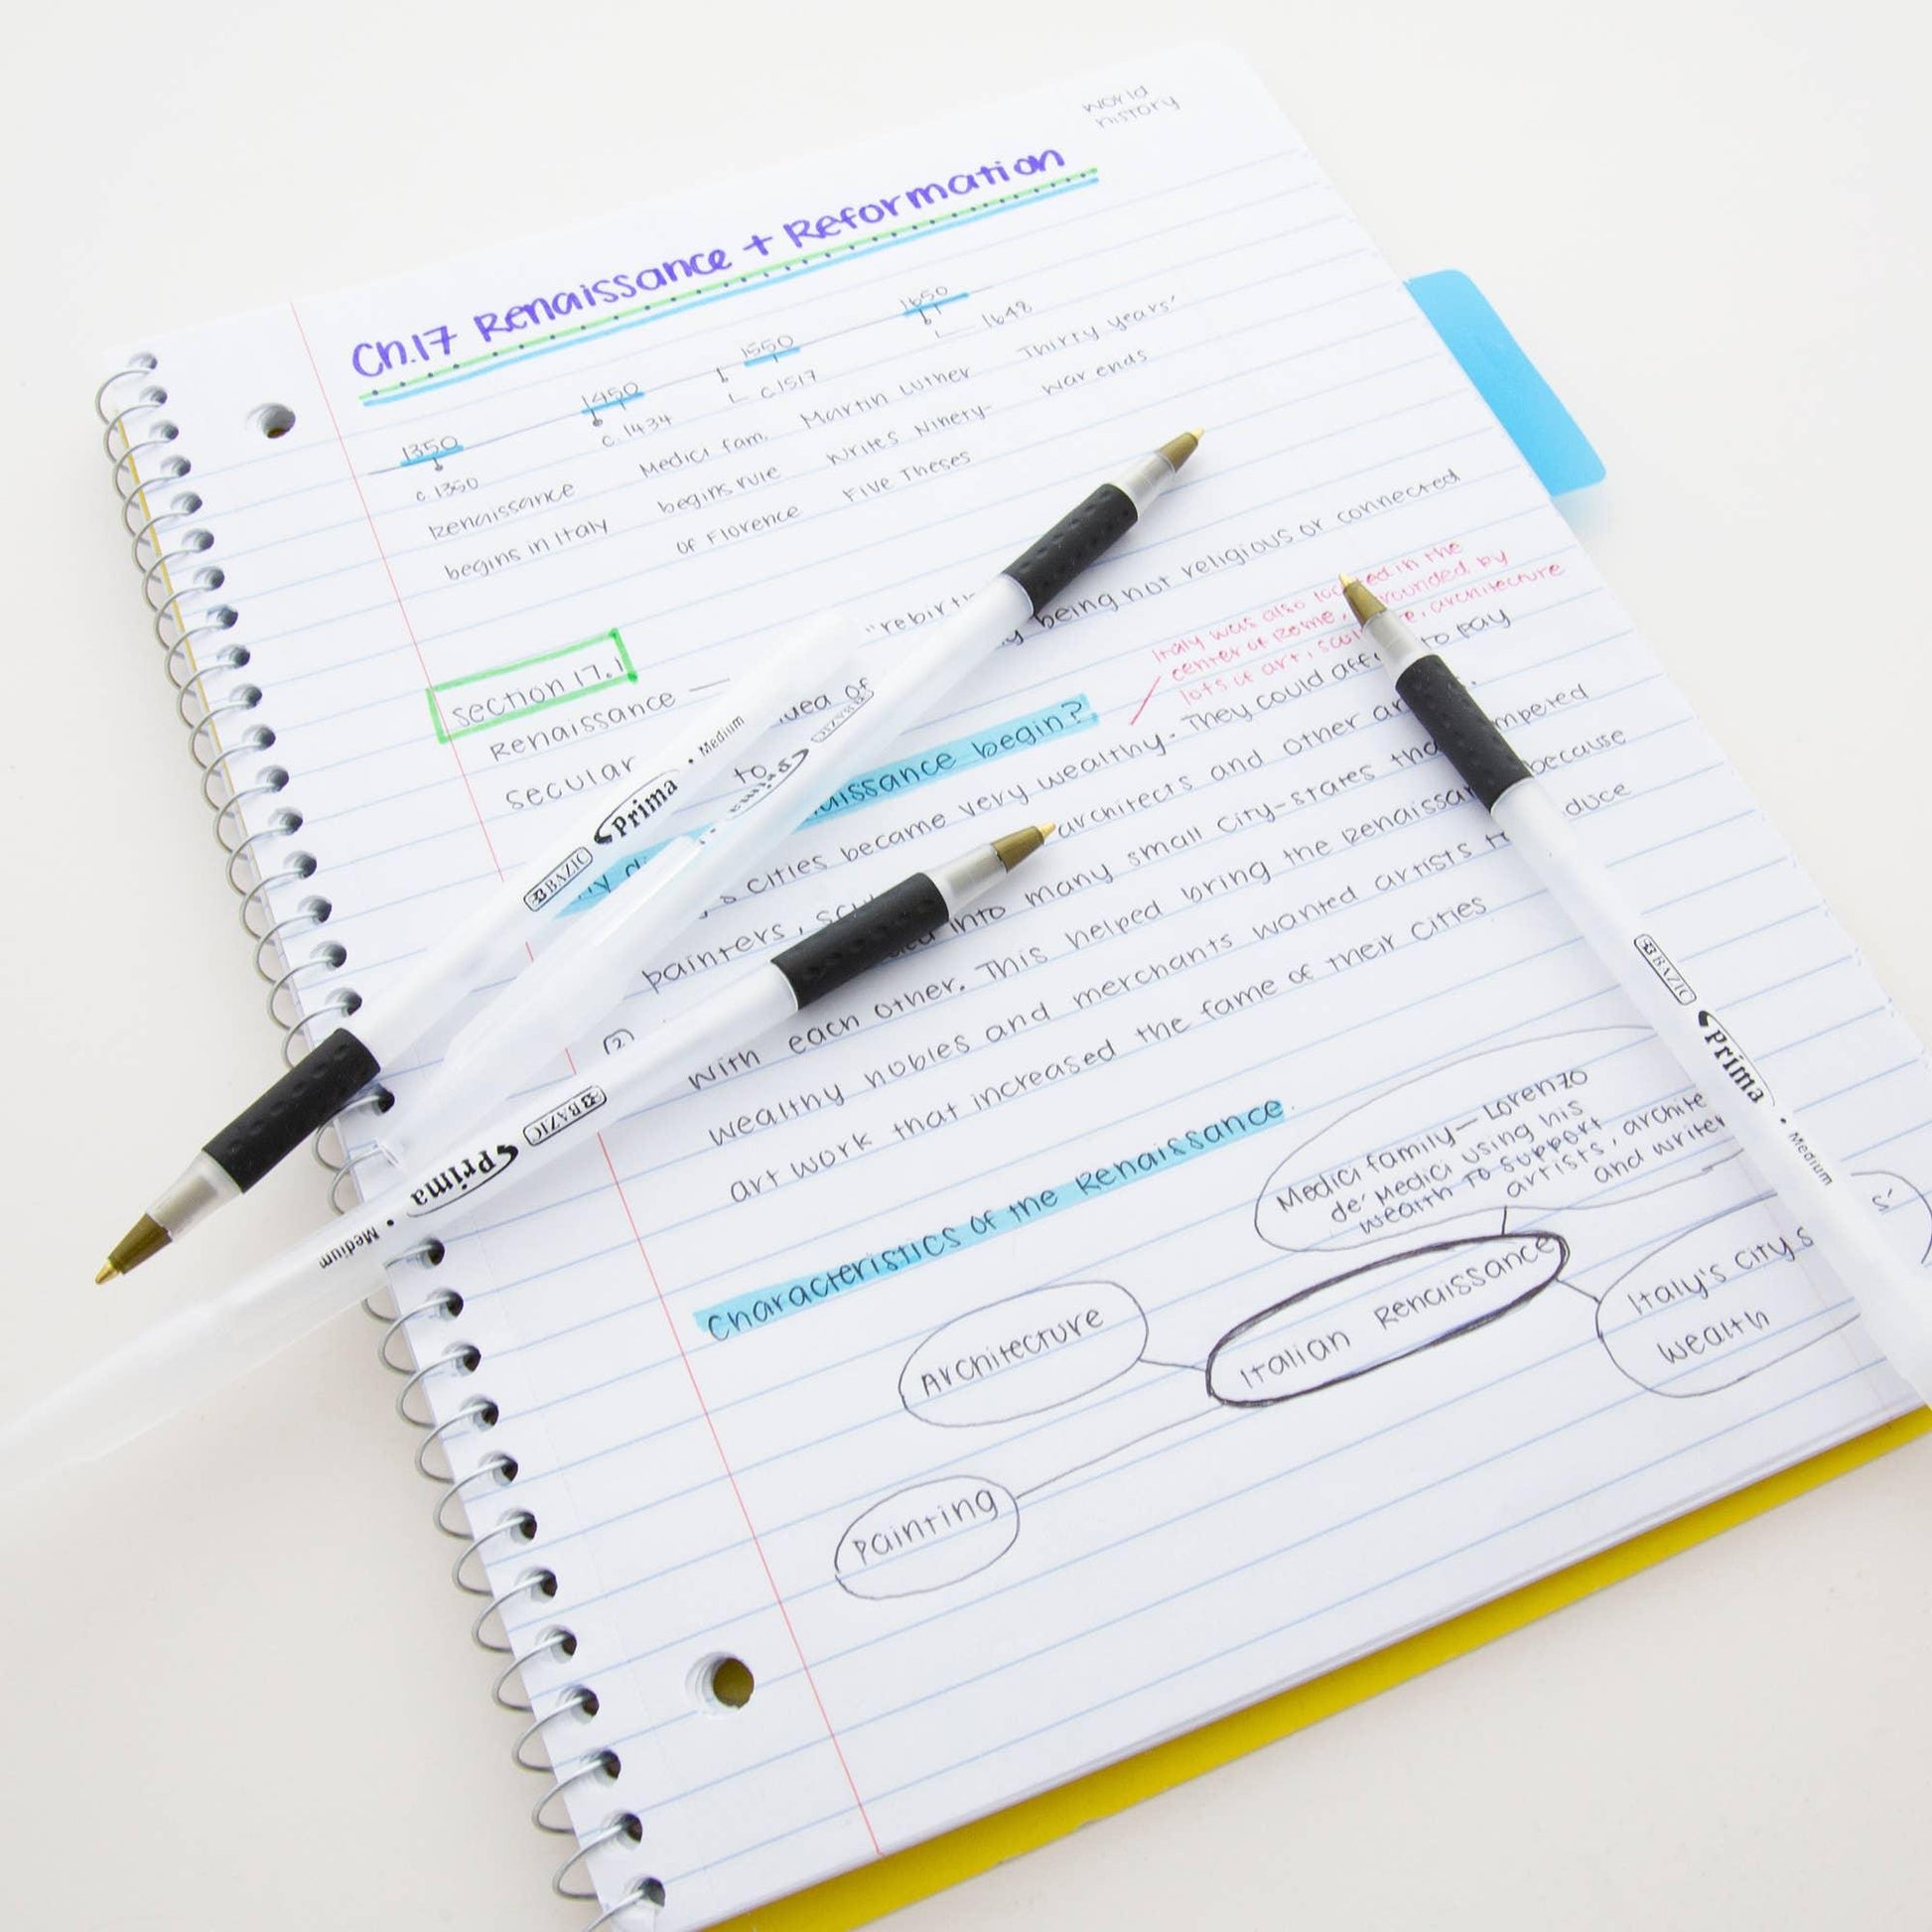 world
history
Ch.17 Renaissance + Reformation
1350
1450
1550
1650
c.1350
Renaissance
begins in Italy
c.1434
Medici fam.
begins rule
of Florence
c.1517
Martin Luther
writes Ninety-
Five Theses
1648
Thirty Years'
war ends
section 17.1
Renaissance —
secular
idea of being not religious or connected
to
Italy was also in the
center of Rome, by
lots of art, architecture
begin?
cities became very wealthy. They could to pay
painters, architects and other
(2) into many small city-states
with each other. This helped bring the because
wealthy nobles and merchants wanted artists
art work that increased the fame of their cities
Characteristics of the Renaissance
Medici family — Lorenzo
de' Medici using his
wealth to support
artists,
and
Italian Renaissance
Architecture
Painting
Italy's city
wealth
BAZIC Prima • Medium
BAZIC Prima
BAZIC Prima • Medium
BAZIC Prima • Medium